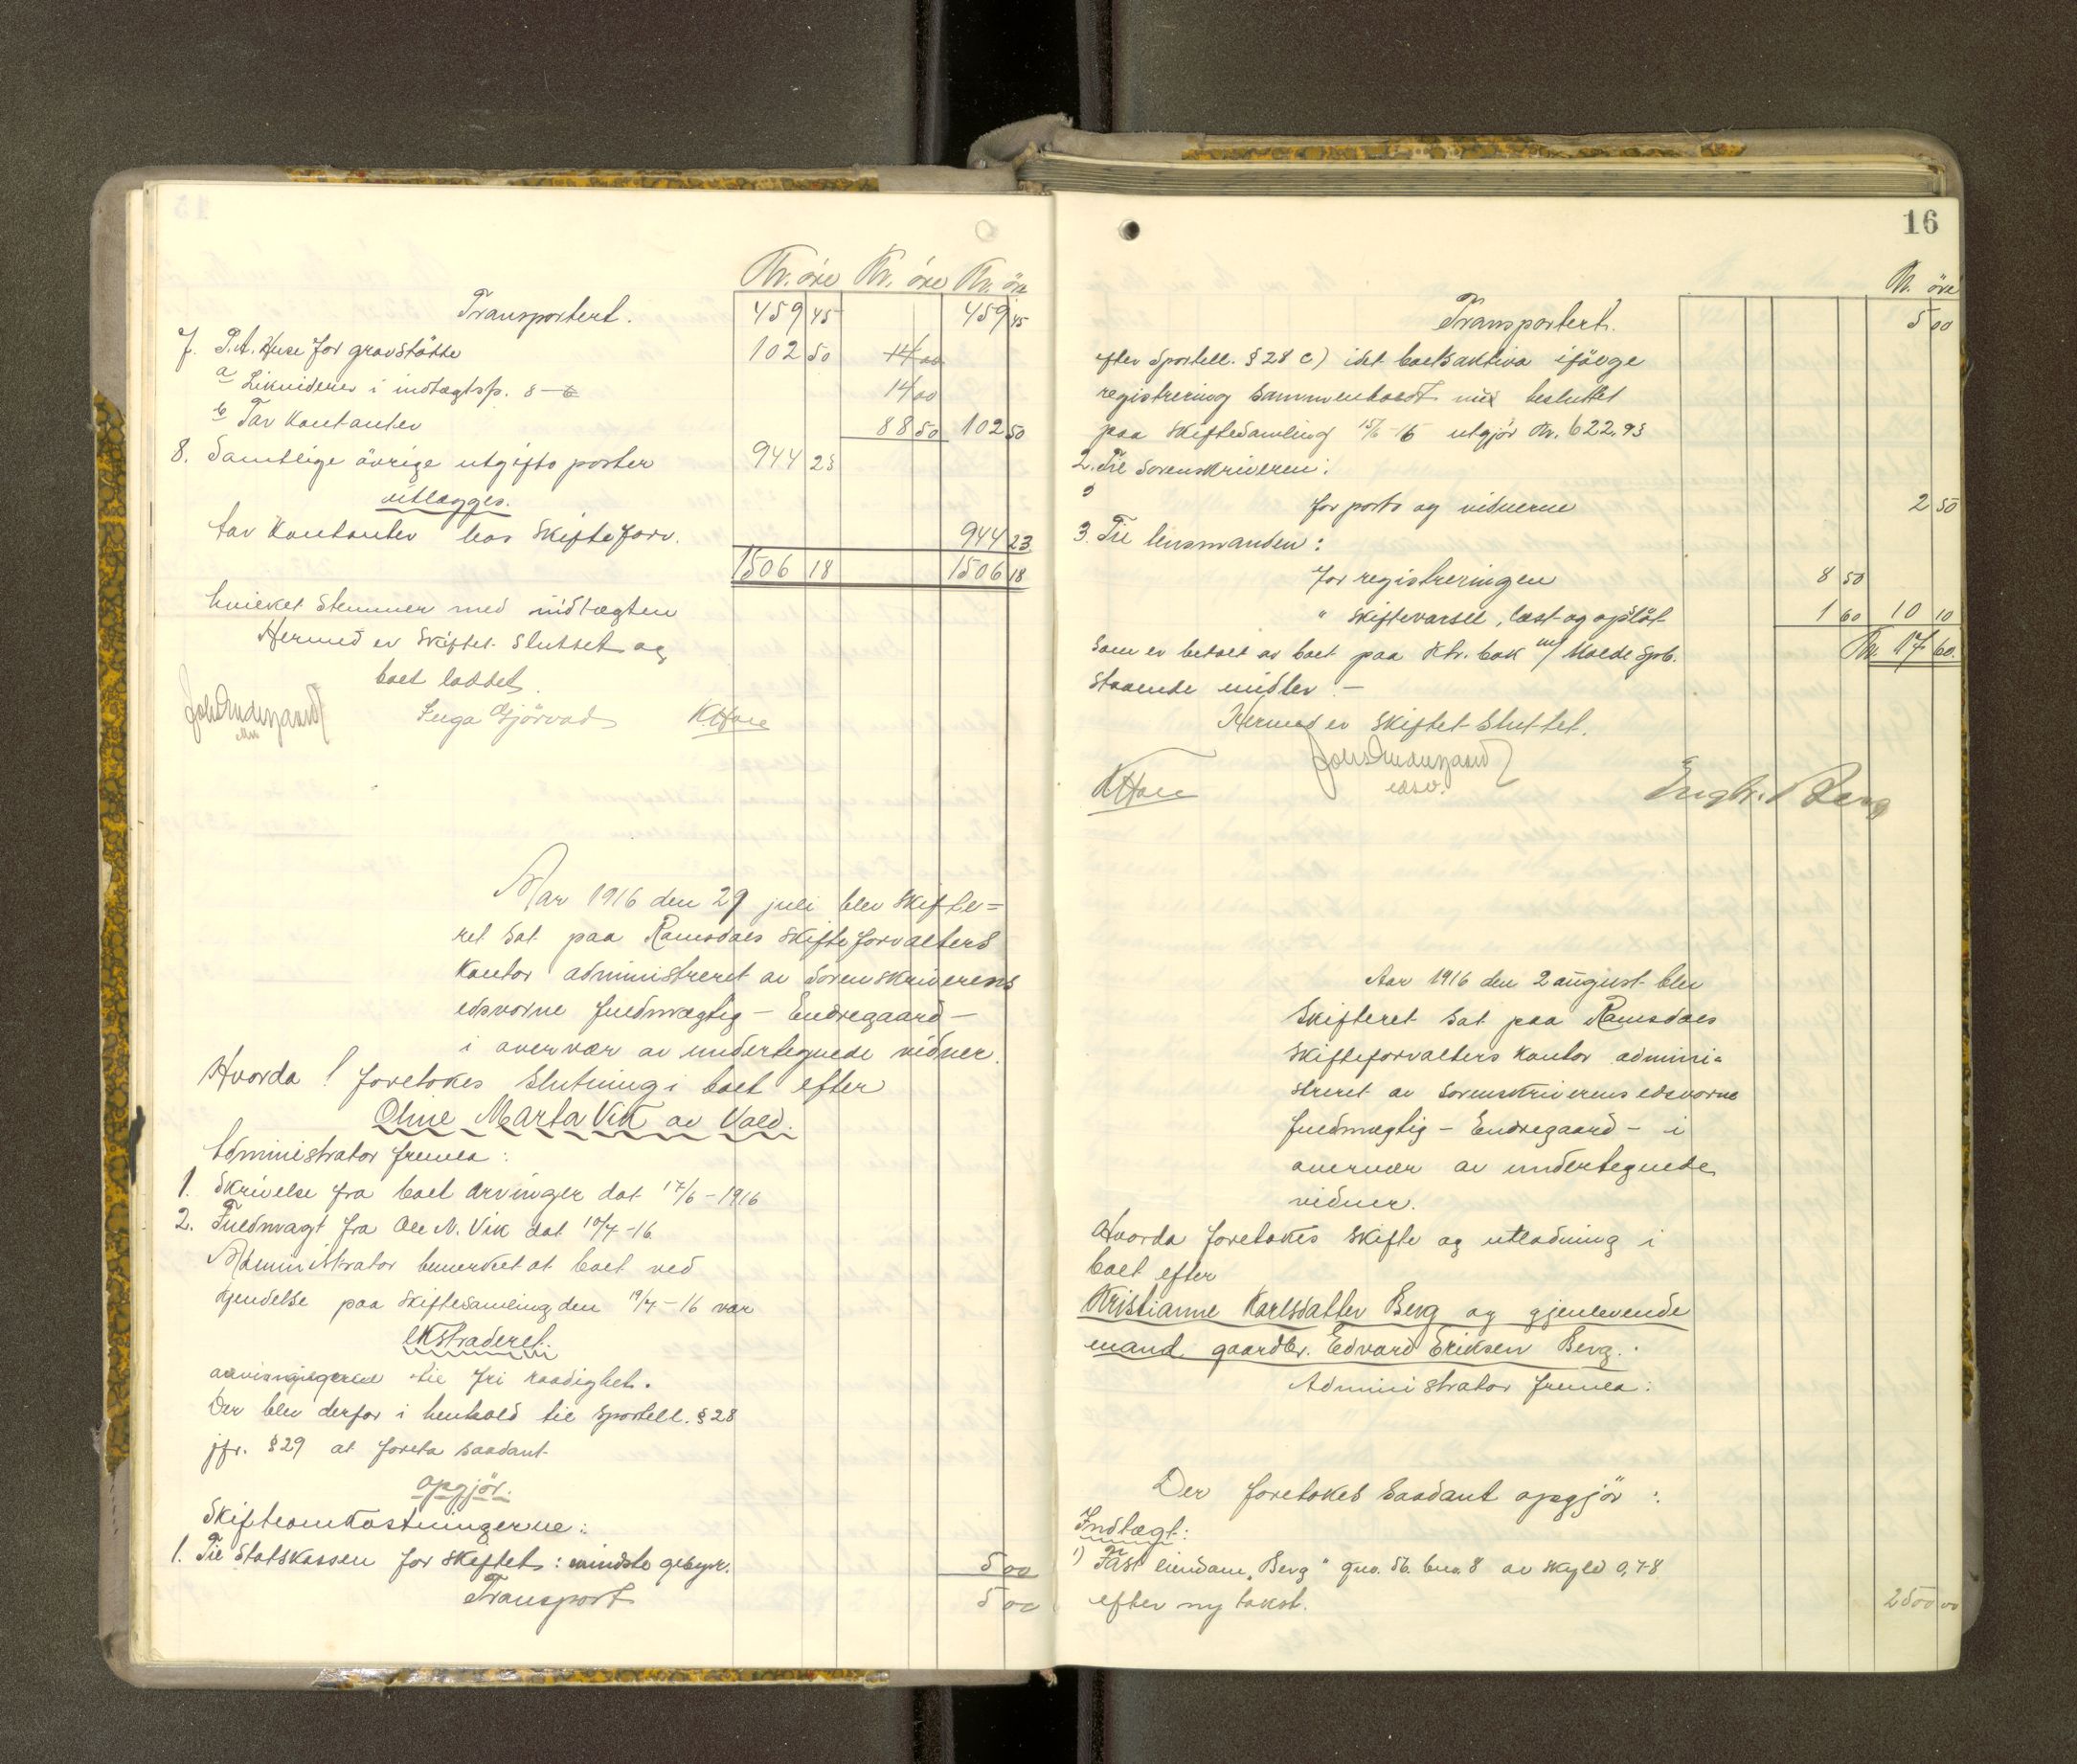 Kr. øre Kr. øre Kr. øre
Transportert. 459 45 459 45
7. P.A. Huse for gravstötte 102 50 14 00
a Likvideres i indtægtsp. 8
14 00
b Tar Kontanter 88 50 102 50
8. Samtlige övrige utgifts poster 944 23
utlægges.
tar Kontanter hos Skifteforv. 944 23
1506 18 1506 18
hvilket Stemmer med indtægten
Hermed er Skiftet Sluttet og
boet loddet.
Inga Gjörvad KHoel
Aar 1916 den 29 juli blev Skifte=
ret Sat paa Romsdals Skifteforvalters
Kontor administreret av Sorenskriverens
edsvorne fuldmægtig - Endregaard -
i overvær av undertegnede vidner.
Hvorda! foretokes Slutning i boet efter
Oline Marta Vik av Vold.
Administrator fremla:
1. Skrivelse fra boet arvinger dat 17/6 - 1916
2. Fuldmagt fra Ole N. Vik dat 10/7 - 16
Administrator bemerket at boet ved
Kjendelse paa Skiftesamling den 19/7 - 16 var
ekstraderet.
arvingerne til fri raadighet.
Der blev derfor i henhold til Sportell. § 28
jfr. § 29 at foreta saadant
opgjör.
Skifteomkostningerne:
1. Til Statskassen for Skiftet: mindste gebyr. 5 00
Transport 5 00
16
Kr. øre
Transportert. 5 00
efter Sportell. § 28 c) idet boets aktiva ifölge
registrering Sammenholdt med besluttet
paa Skiftesamling 15/6 - 16 utgjör Kr. 622.93
2. Til Sorenskriveren:
for porto og vidnerne 2 50
3. Til lensmanden:
for registreringen 8 50
" Skiftevarsel, læst og opslåt 1 60 10 10
Kr. 17 60.
Som er betalt av boet paa Ktr. bok m/ Molde Spb.
staaende midler. -
Hermed er Skiftet Sluttet.
KHoel Endregaard edsv. Engbr. Berg
Aar 1916 den 2 august blev
Skifteret Sat paa Romsdals
Skifteforvalters Kontor admini=
streret av Sorenskriverens edsvorne
fuldmægtig - Endregaard - i
overvær av undertegnede
vidner.
Hvorda foretokes Skifte og utlodning i
boet efter
Kristianne Karlsdatter Berg og gjenlevende
mand gaardbr. Edvard Eriksen Berg.
Administrator fremla:
Der foretokes Saadant opgjör:
Indtægt:
1) Fast eiendom "Berg" gno. 56. bno. 8 av Skyld 0,78
efter ny takst. 2500 00